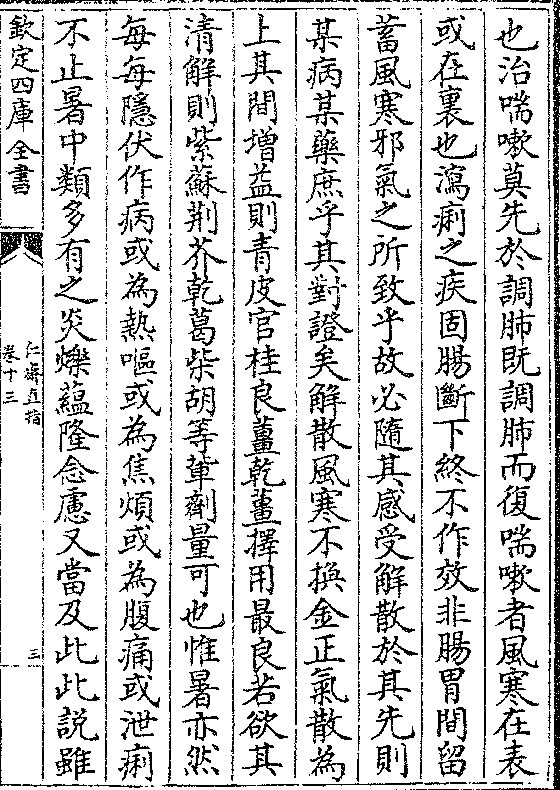 也治喘嗽莫先於調肺既調肺而復喘嗽者風寒在表
或在裏也瀉痢之疾固腸斷下終不作效非腸胃間留
蓄風寒邪氣之所致乎故必隨其感受解散於其先則
某病某藥庶乎其對證矣解散風寒不換金正氣散為
上其間增益則青皮官桂良薑乾薑擇用最良若欲其
清解則紫蘇荆芥乾葛柴胡等軰劑量可也惟暑亦然
每每隱伏作病或為熱嘔或為焦煩或為腹痛或泄痢
不止暑中類多有之炎爍藴隆念慮又當及此此説雖
欽定四庫全書
仁齋直指
卷十三
三